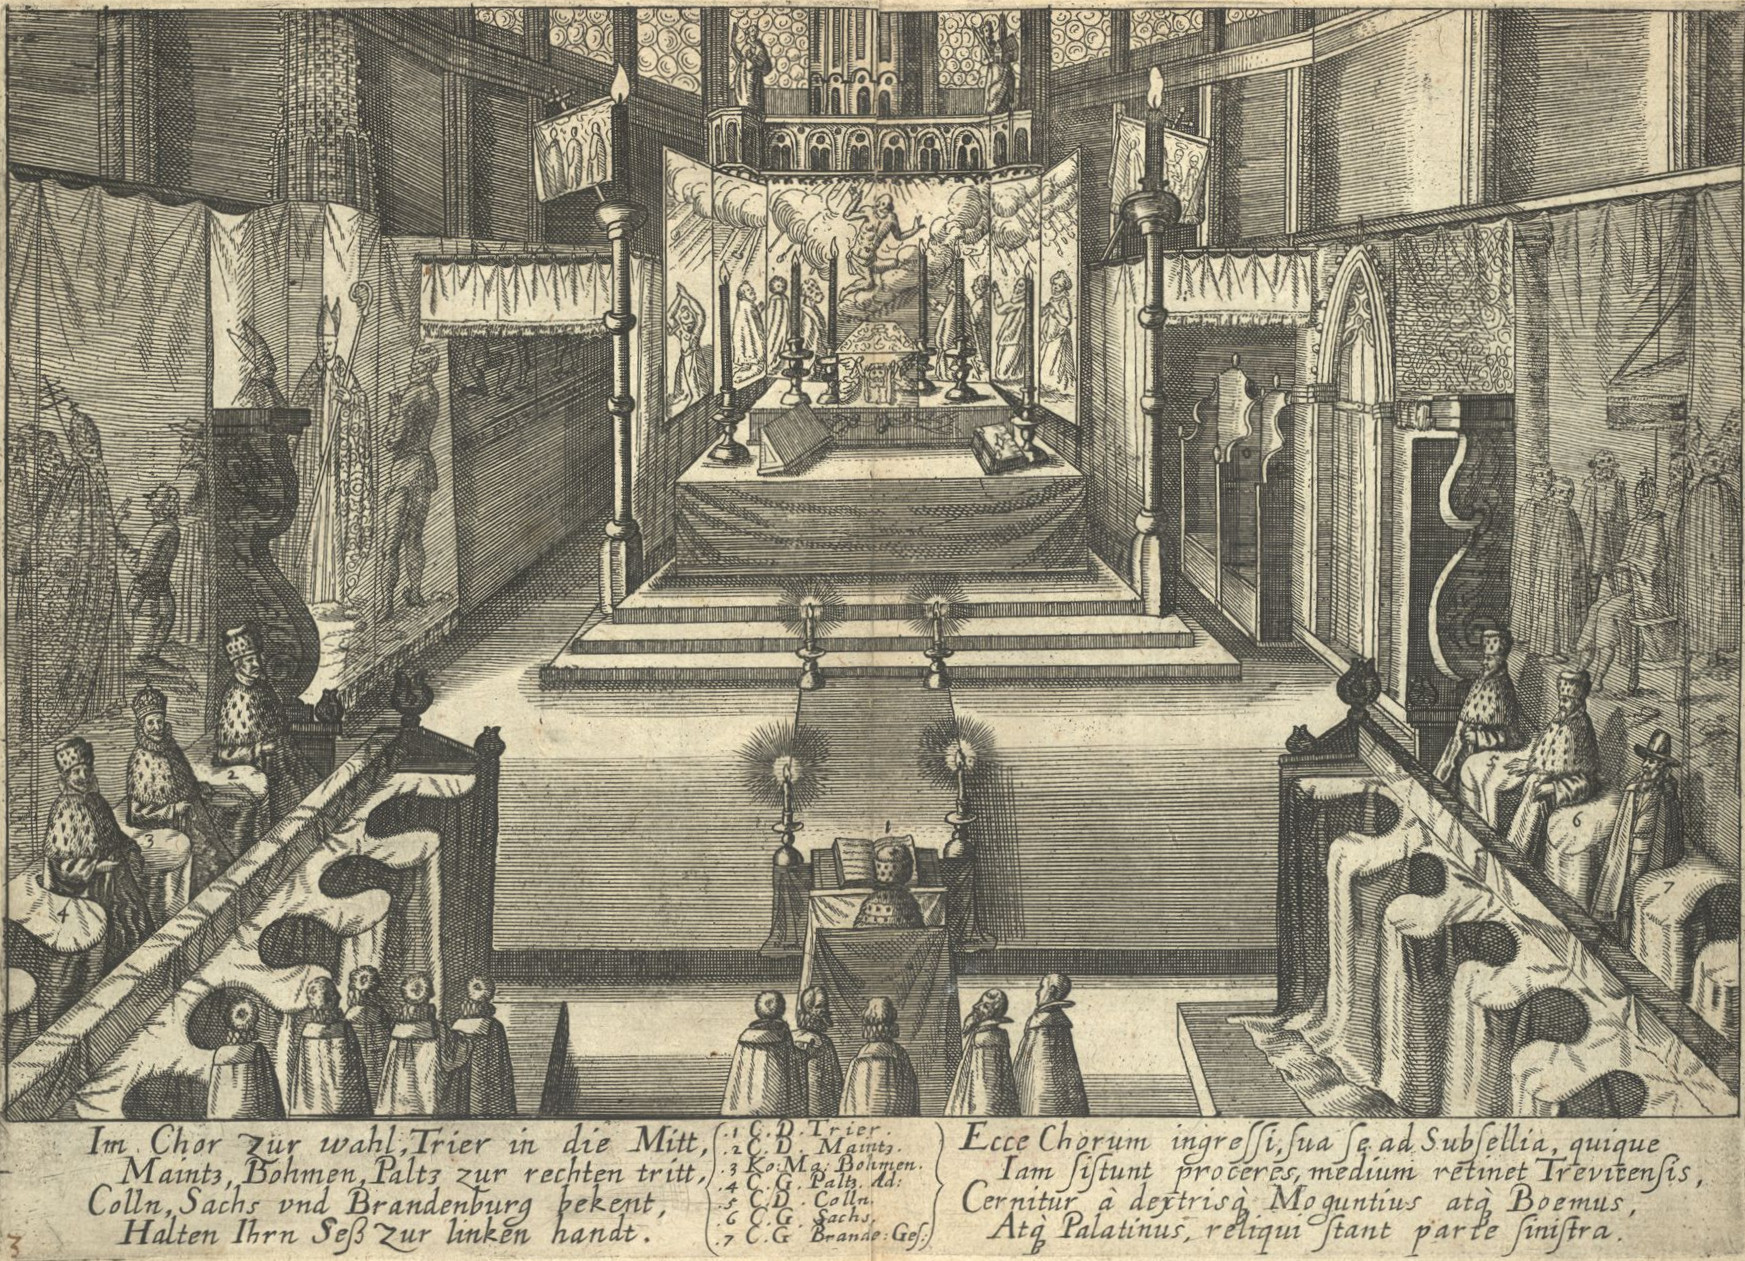 1
2
3
4
5
6
7
Im Chor zür wahl, Trier in die Mitt,
Maintz, Böhmen, Paltz zur rechten tritt,
Colln, Sachs vnd Brandenburg bekent,
Halten Ihrn Seß zur linken handt.
.1 C. D. Trier.
.2 C. D. Maintz.
.3 Ko: Ma: Bohmen.
.4 C. G. Paltz Ad:
.5 C. D. Colln.
.6 C. G. Sachs.
.7 C. G Brande: Ges:
Ecce Chorum ingreſſi, ſua ſe ad Subſellia, quique
Iam ſiſtunt proceres, medium retinet Trevirenſis,
Cernitur à dextrisq́ Moguntius atq́ Boemus,
Atq́ Palatinus, reliqui ſtant parte ſiniſtra.
3